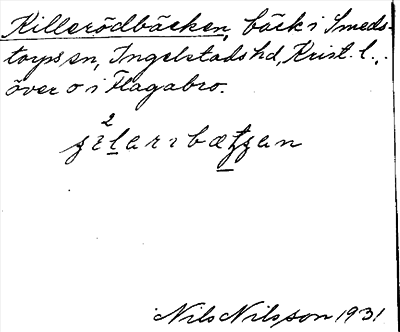 Killerödbäcken, bäck i Smeds-
torps sn, Ingelstads hd, Krist. l.,
över o i Hagabro.
Nils Nilsson 1931